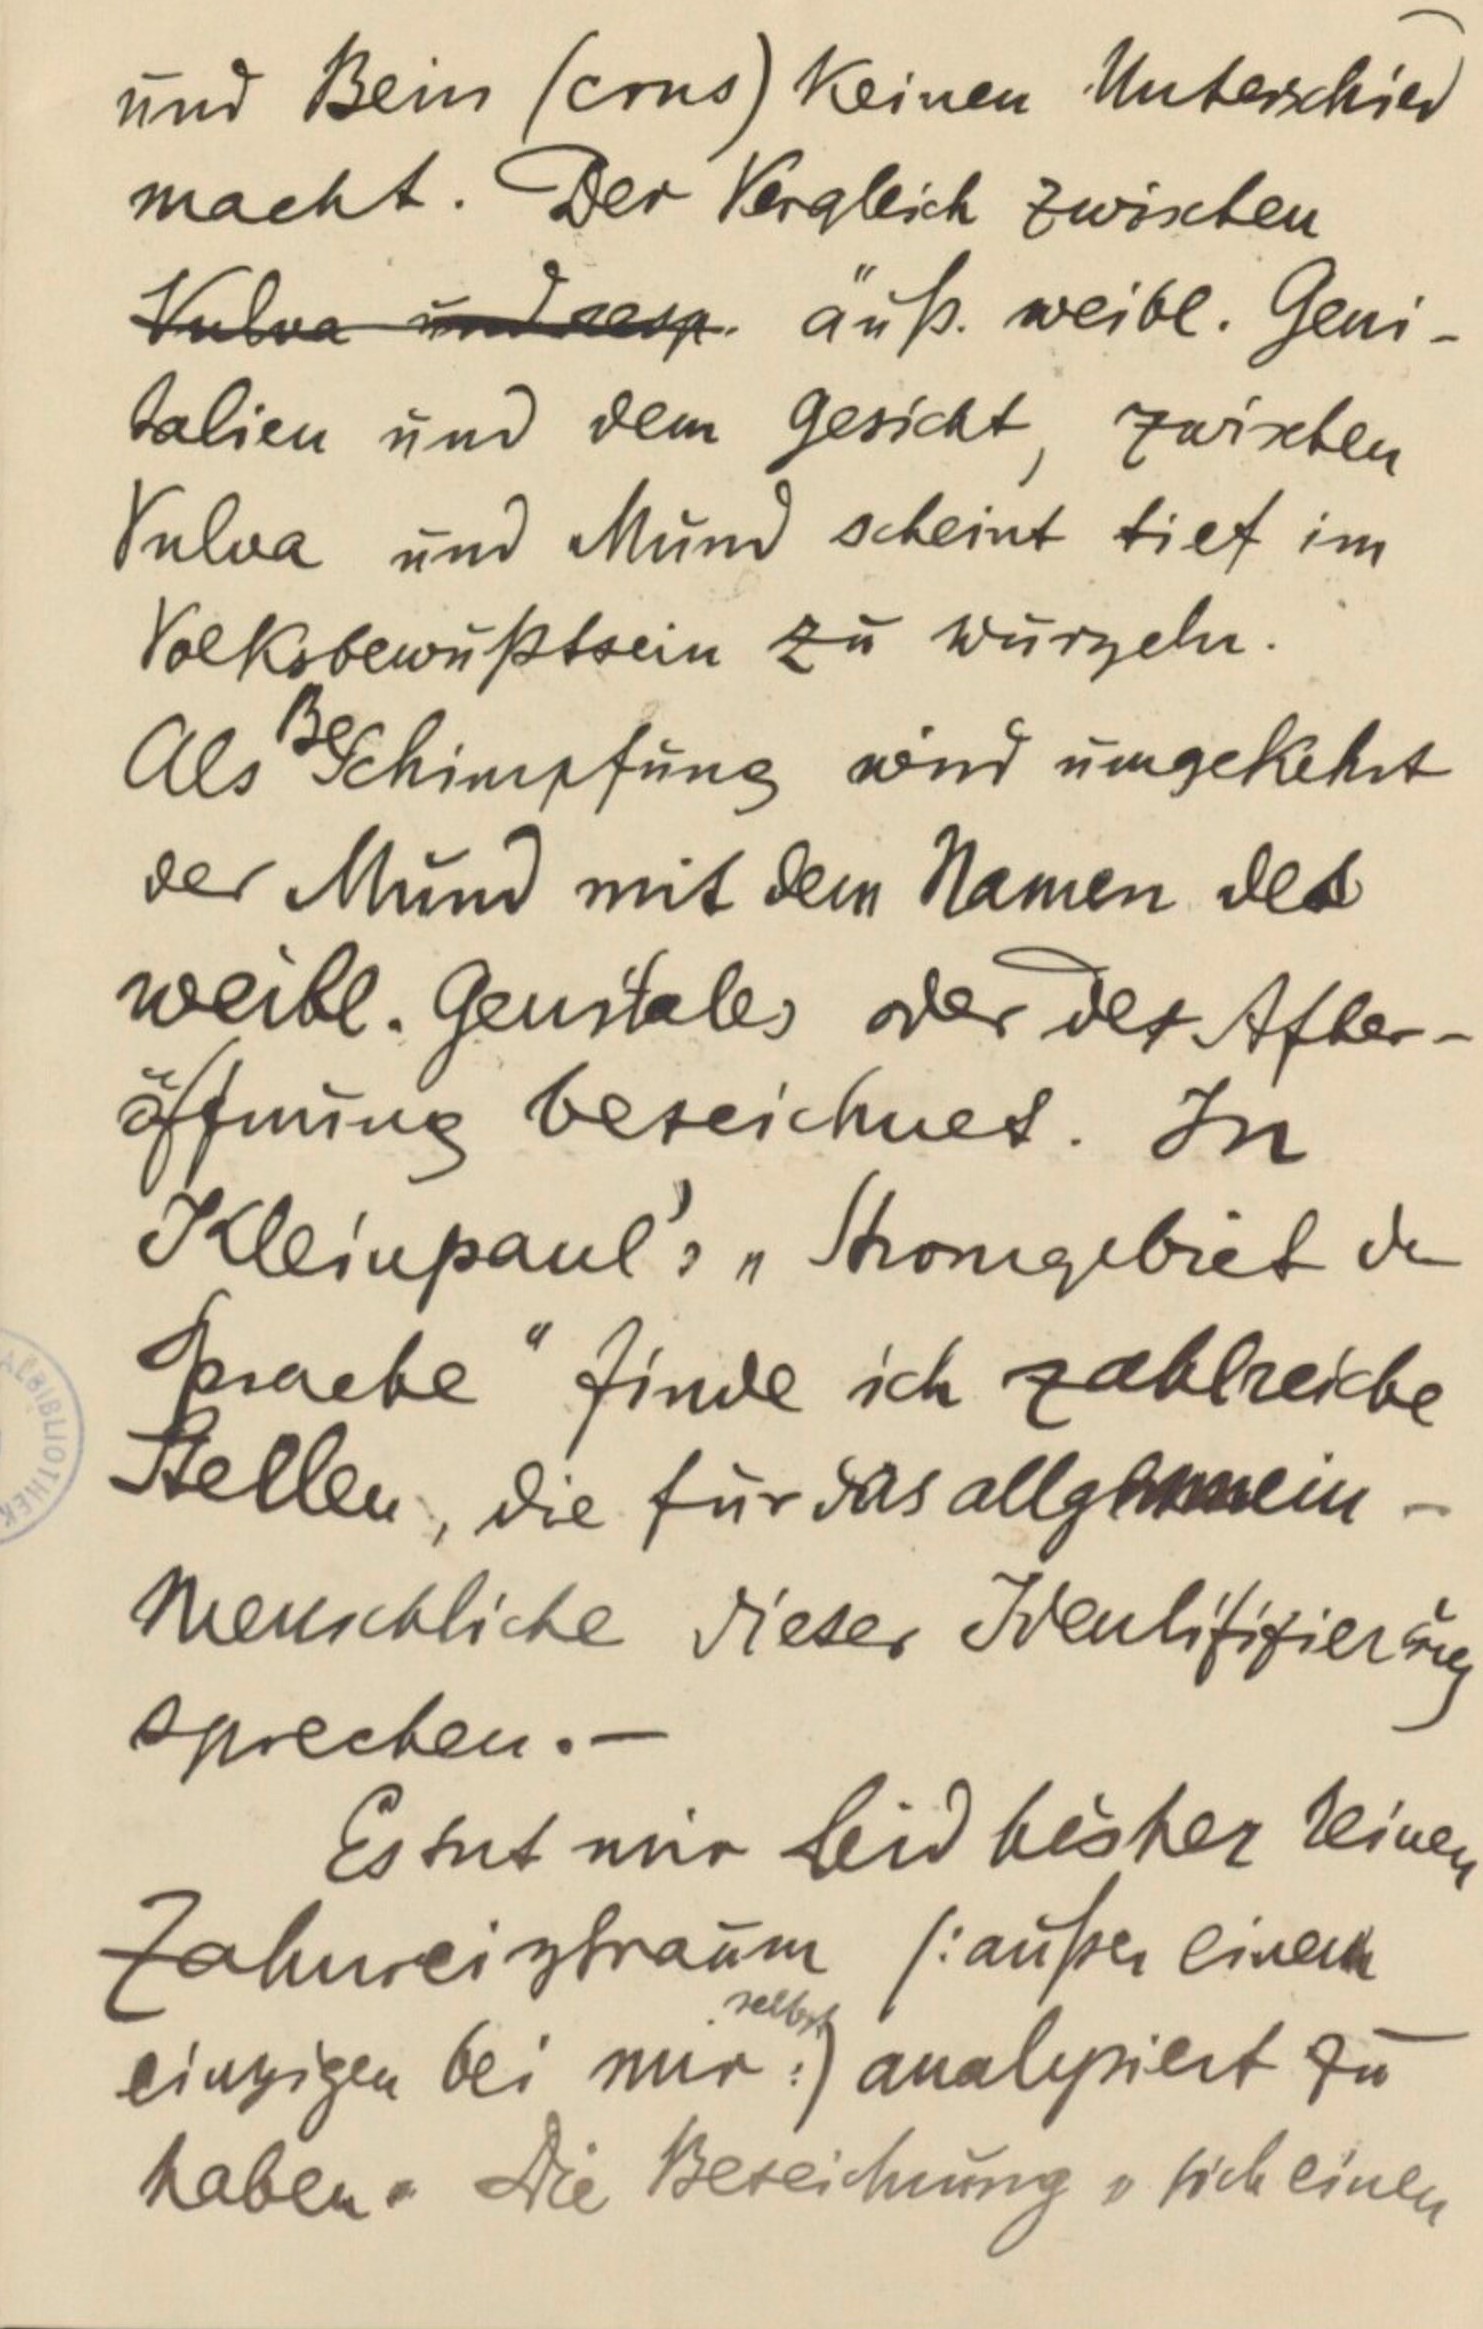 und Bein (crus) keinen Unterschied
macht. Der Vergleich zwischen
Vulva und resp. äuß. weibl. Geni-
talien und dem Gesicht, zwischen
Vulva und Mund scheint tief im
Volksbewußtsein zu wurzeln.
Als BeSchimpfung wird umgekehrt
der Mund mit dem Namen des
weibl. Genitales oder der After-
öffnung bezeichnet. In
Kleinpaul's „Stromgebiet der
Sprache“ finde ich zahlreiche
Stellen, die für das allgemein-
Menschliche dieser Identifizierung
sprechen.—
Es tut mir Leid bisher keinen
Zahnreiztraum (: außer einem
einzigen bei mir selbst :) analysiert zu
haben. Die Bezeichnung „sich einen
BIBLIOTHEK